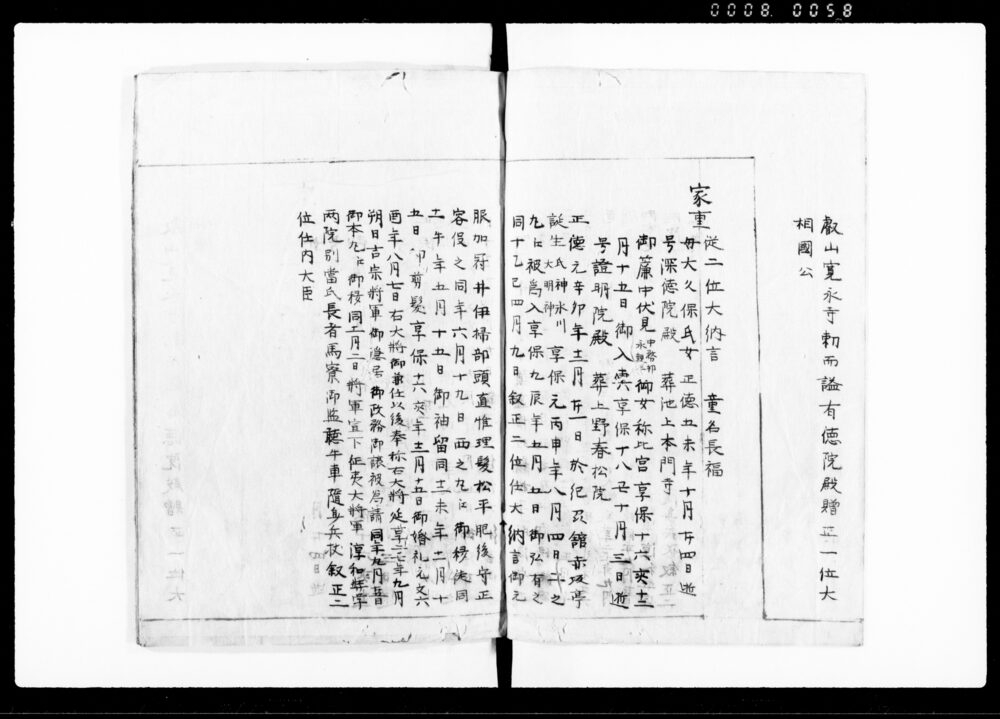 0008 0058
叡山寛永寺勅而謚有徳院殿贈正一位大
相國公
家重 従二位大納言 童名長福
母大久保氏女 正徳五未年十月廿四日逝
号深徳院殿 葬池上本門寺
御簾中伏見中務卿永親王御女称比宮享保十六亥十二
月十五日御入輿享保十八丑十月三日逝
号證明院殿 葬上野春松院
正徳元辛卯年十二月廿一日於紀刕館赤坂亭
誕生氏神氷川大明神 享保元丙申年八月四日二之
九江被為入享保九辰年五月五日御弘有之
同十乙巳四月九日叙正二位任大納言御元
服加冠井伊掃部頭直惟理髪松平肥後守正
容役之同年六月十九日西之丸江御移徙同
十一午年五月十五日御袖留同十二未年十二月十
五日御剪髪享保十六亥年十二月十五日御婚礼元文六
酉年八月七日右大将御兼任以後奉称右大将延享二丑年九月
朔日吉宗将軍御隠居御政務御譲被為請同年九月廿五日
御本丸江御移同十一月二日将軍宣下征夷大将軍淳和奨学
両院別當氏長者馬寮御監聴牛車随身兵杖叙正二
位任内大臣